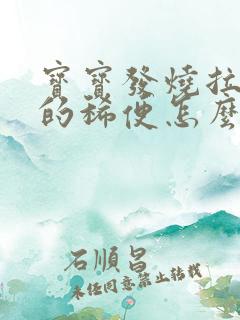 寶寶發燒拉
的稀便怎麼
石順昌
未经同意禁止转载